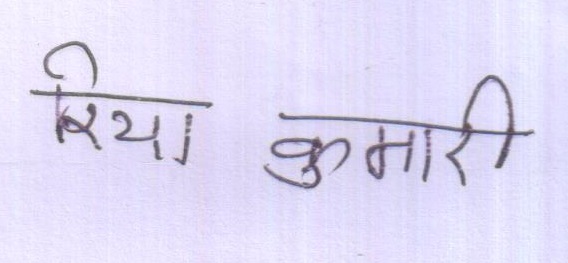 रिया कुमारी